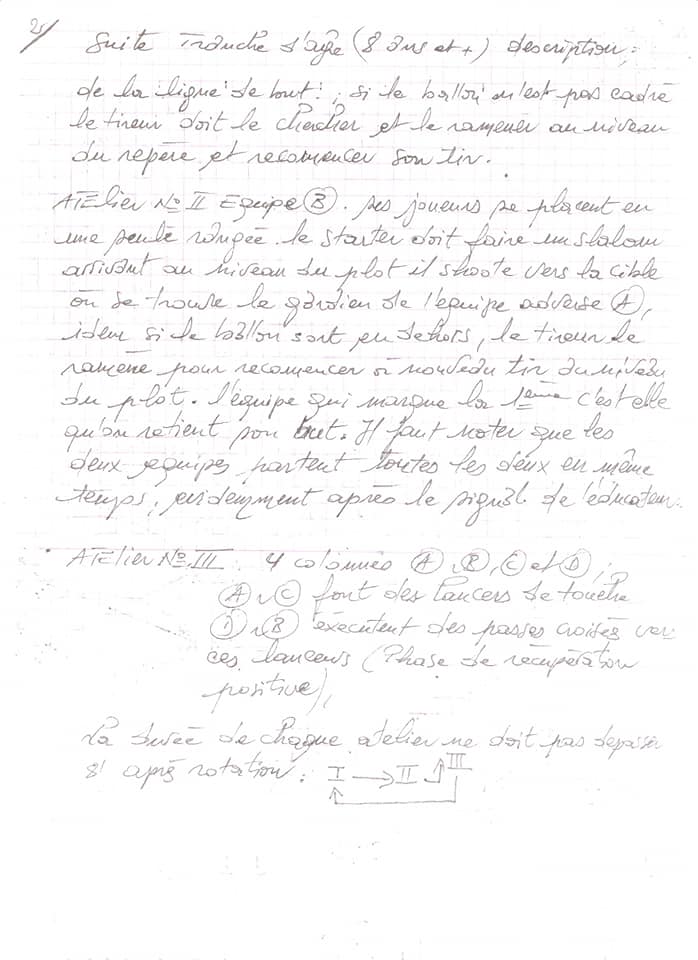 2/
Suite Tranche d'age (8 ans et +) description :
de la ligne de but : ; si le ballon n'est pas cadré
le tireur doit le chercher et le ramener au niveau
du repère et recomencer son tir.
ATElier No II Equipe (B). Les joueurs se placent en
une seule rangée. le starter doit faire un slalom
arrivant au niveau du plot il shoote vers la cible
où se trouve le gardien de l'equipe adverse (A),
idem si le ballon sort en dehors, le tireur le
ramène pour recomencer à nouveau tir au niveau
du plot. l'équipe qui marque la 1ème c'est elle
qu'on retient son but. Il faut noter que les
deux equipes partent toutes les deux en même
temps, evidemment après le signal de l'éducateur.
ATELIER No III 4 colonnes (A), (B), (C) et (D) ;
(A), (C) font des lancers de touche
(D), (B) exécutent des passes croisés vers
ces lanceurs (Phase de récupération
positive),
La durée de chaque atelier ne doit pas depasser
8' après rotation : I → II → III